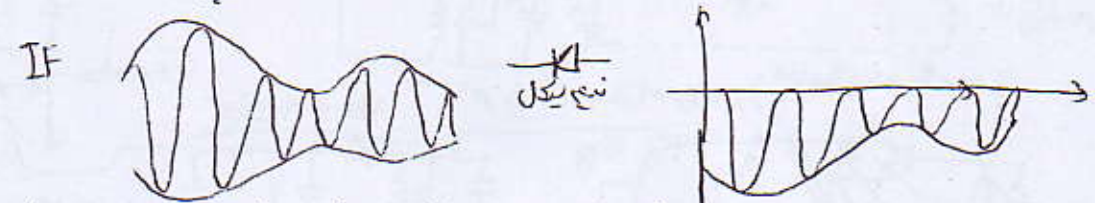 IF
نیم سیکل